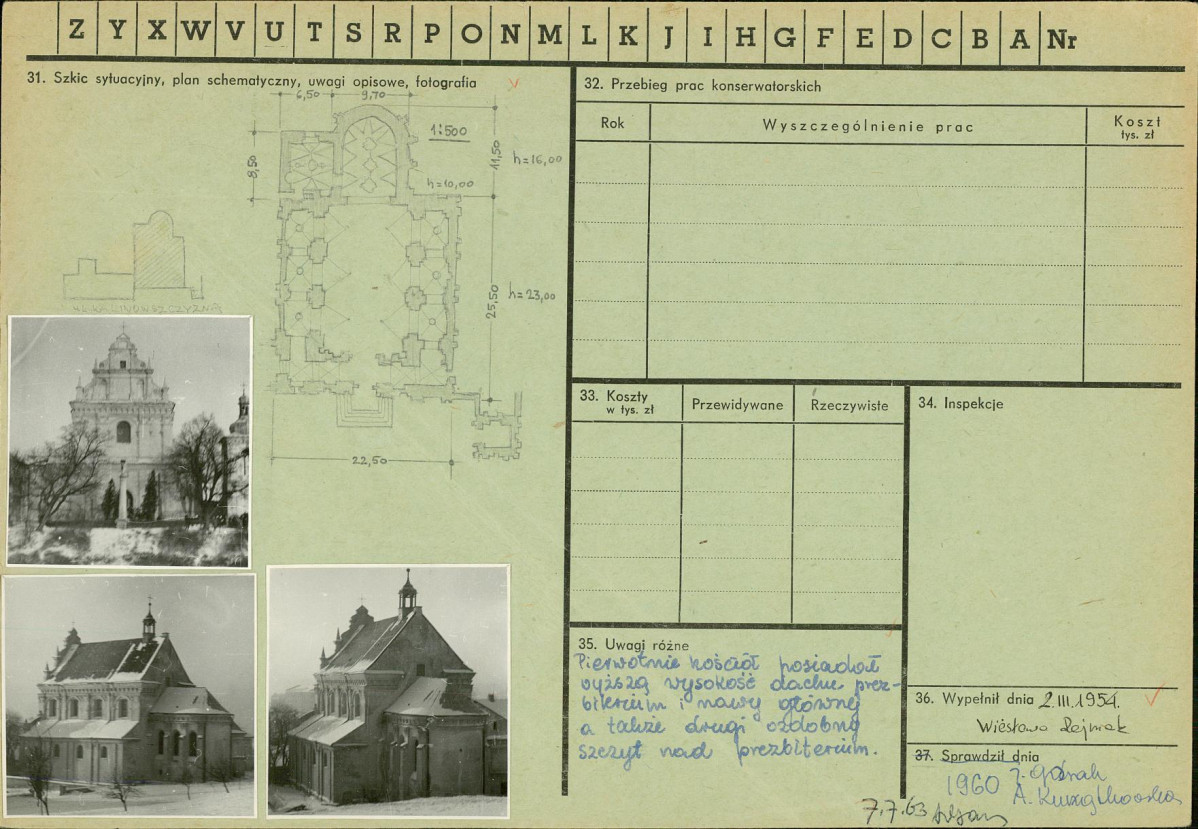 Z Y X W V U T S R P O N M L K J I H G F E D C B A Nr
31. Szkic sytuacyjny, plan schematyczny, uwagi opisowe, fotografia
6,50 9,70
1:500
8,50
11,50
h=16,00
h=10,00
25,50
h=23,00
22,50
32. Przebieg prac konserwatorskich
Rok
Wyszczególnienie prac
Koszt
tys. zł
33. Koszty
w tys. zł
Przewidywane
Rzeczywiste
34. Inspekcje
35. Uwagi różne
Pierwotnie kościół posiadał
wyższą wysokość dachu prez-
biterium i nawy głównej
a także drugi ozdobny
szczyt nad prezbiterium.
36. Wypełnił dnia 2.III.1954.
Wiesława
37. Sprawdził dnia
1960 J. Górak
A.
7.7.63